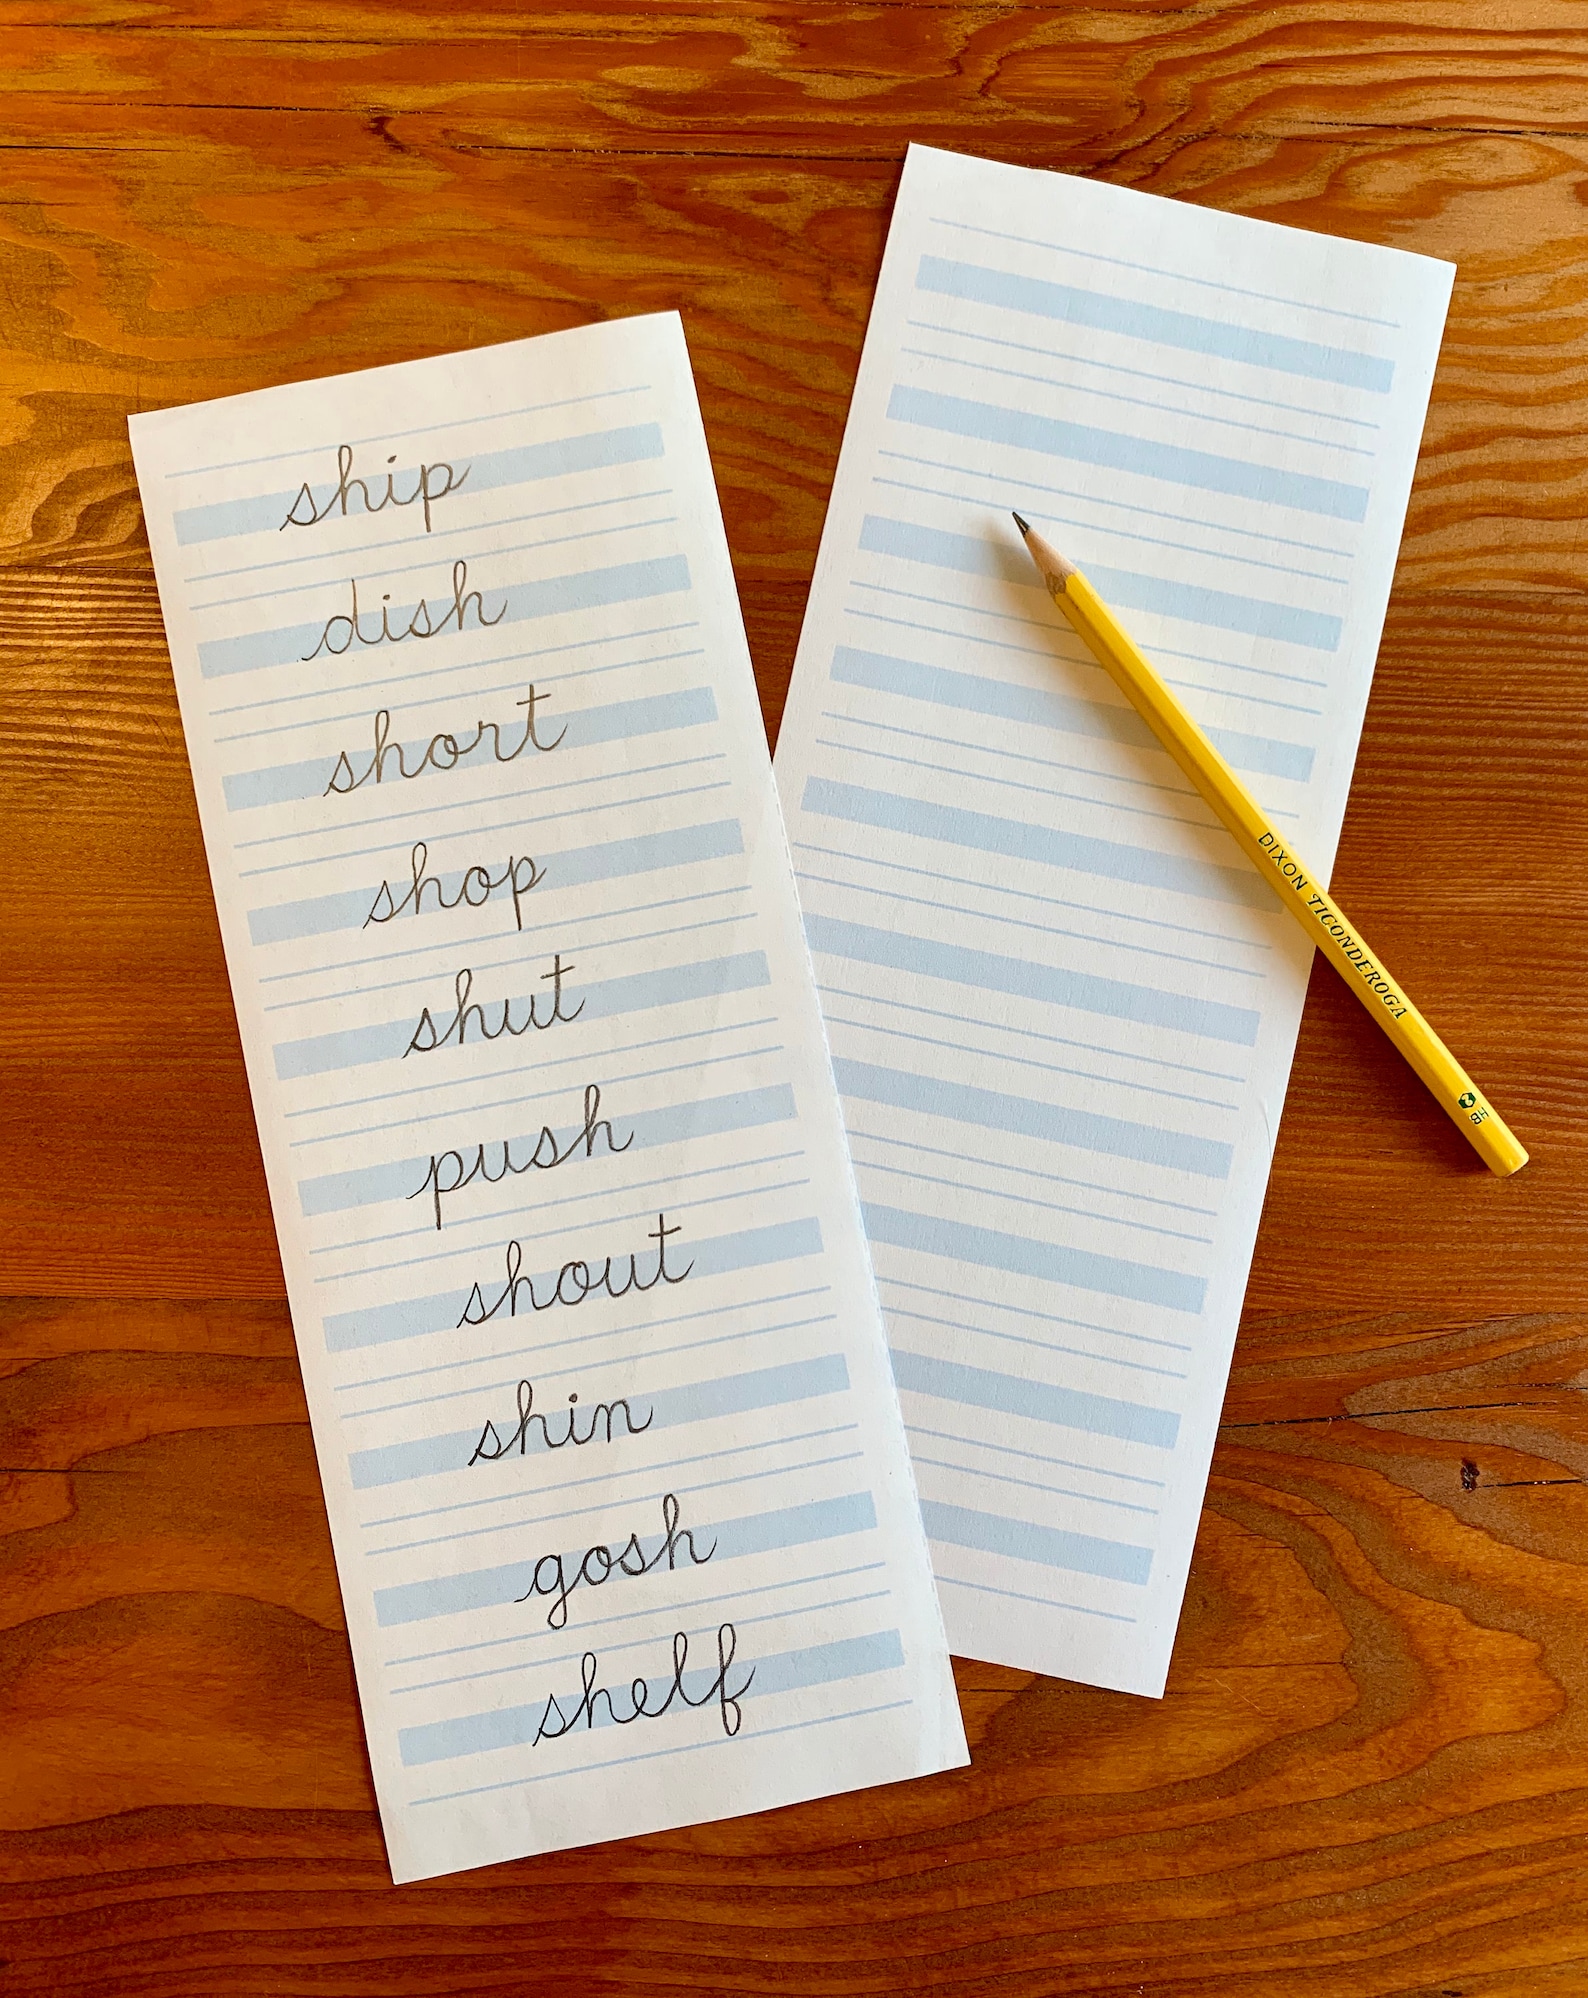 ship
dish
short
shop
shut
push
shout
shin
gosh
shelf
DIXON TICONDEROGA HB